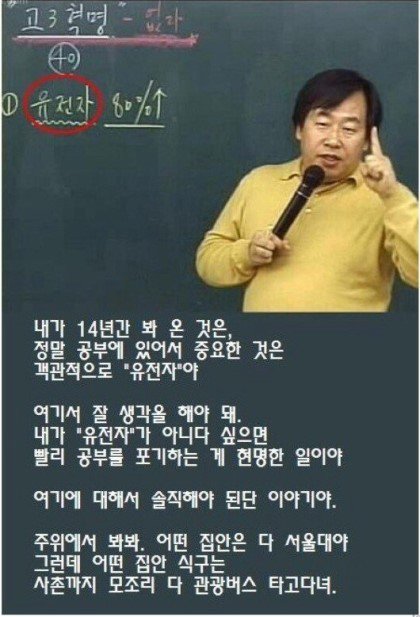 고3혁명 - 없다
40
① 유전자 80%↑
내가 14년간 봐 온 것은,
정말 공부에 있어서 중요한 것은
객관적으로 "유전자"야
여기서 잘 생각을 해야 돼.
내가 "유전자"가 아니다 싶으면
빨리 공부를 포기하는 게 현명한 일이야
여기에 대해서 솔직해야 된단 이야기야.
주위에서 봐봐. 어떤 집안은 다 서울대야
그런데 어떤 집안 식구는
사촌까지 모조리 다 관광버스 타고다녀.